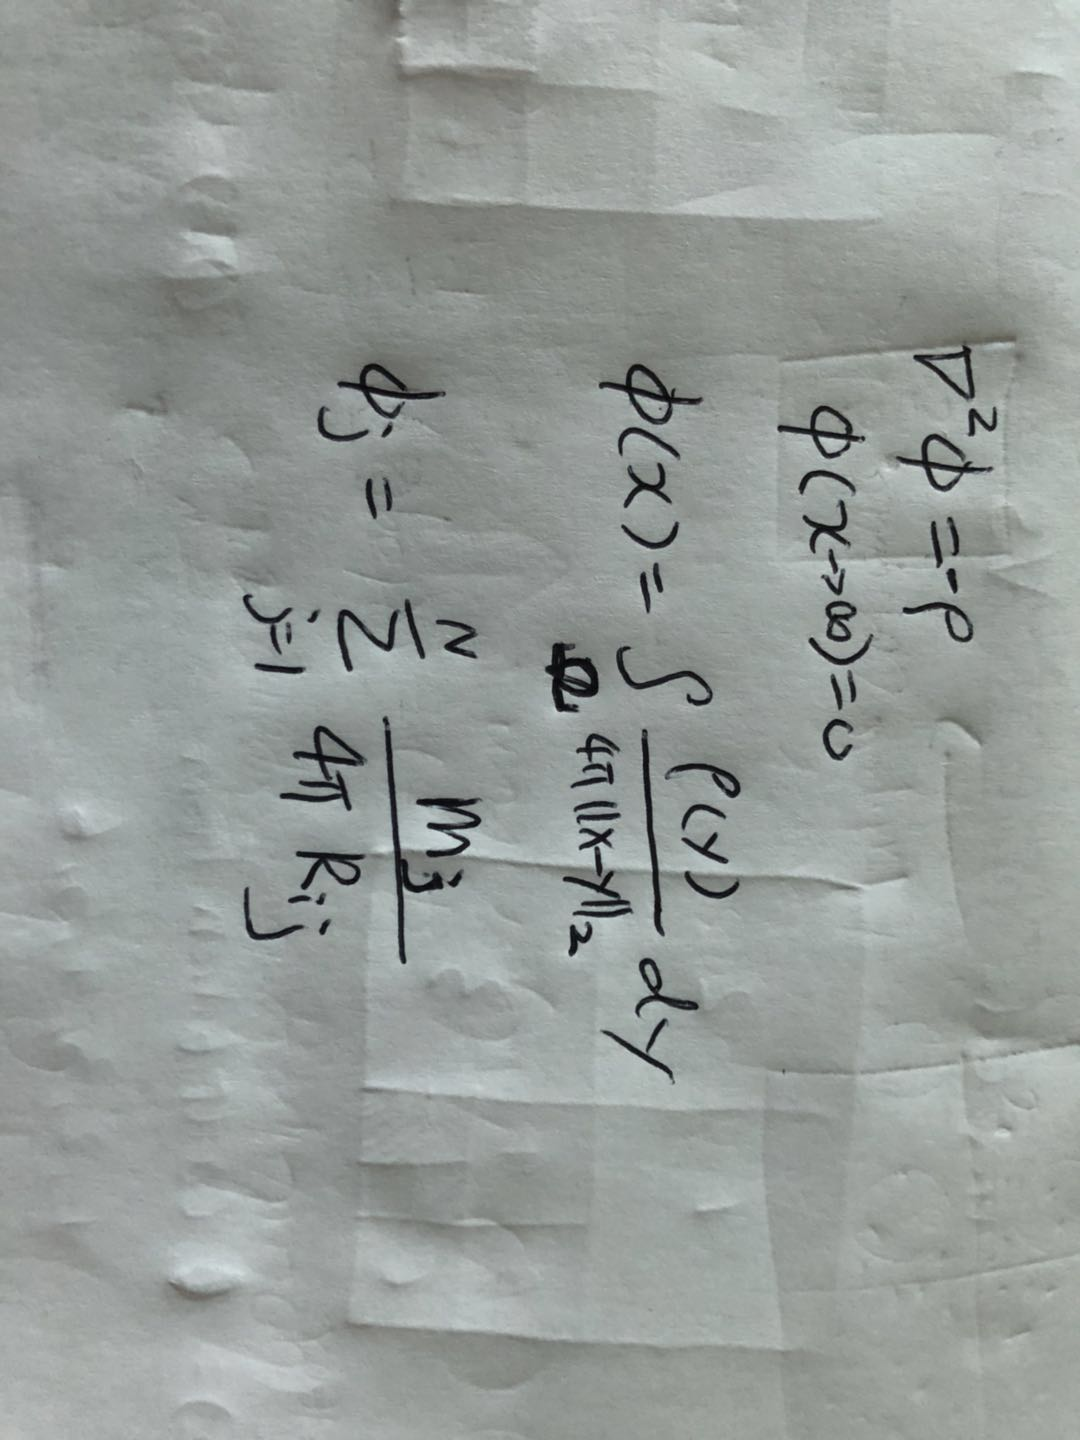 ∇²φ = -ρ
φ(x→∞) = 0
φ(x) = ∫ ρ(y) / 4π||x-y||₂ dy
φj = Σ_{j=1}^{N} mj / 4π Rij